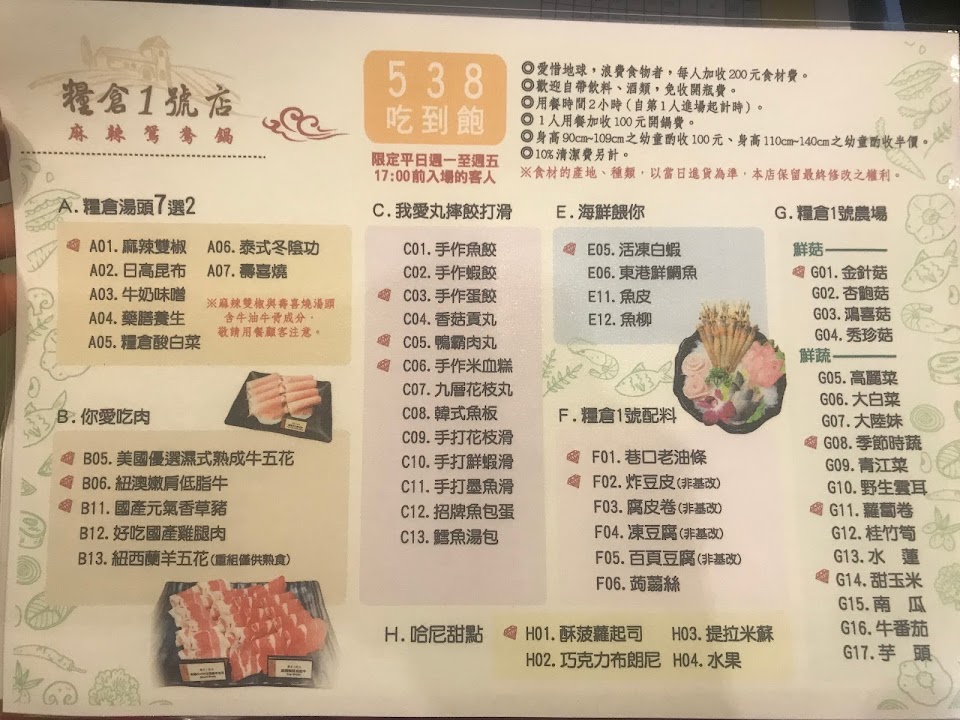 糧倉1號店
麻辣鴛鴦鍋
538
吃到飽
限定平日週一至週五
17:00前入場的客人
◎愛惜地球，浪費食物者，每人加收200元食材費。
◎歡迎自帶飲料、酒類，免收開瓶費。
◎用餐時間2小時(自第1人進場起計時)。
◎1人用餐加收100元開鍋費。
◎身高90cm~109cm之幼童酌收100元、身高110cm~140cm之幼童酌收半價。
◎10%清潔費另計。
※食材的產地、種類，以當日進貨為準，本店保留最終修改之權利。
A.糧倉湯頭7選2
A01.麻辣雙椒
A02.日高昆布
A03.牛奶味噌
A04.藥膳養生
A05.糧倉酸白菜
A06.泰式冬陰功
A07.壽喜燒
※麻辣雙椒與壽喜燒湯頭
含牛油牛骨成分，
敬請用餐顧客注意。
B.你愛吃肉
B05.美國優選濕式熟成牛五花
B06.紐澳嫩肩低脂牛
B11.國產元氣香草豬
B12.好吃國產雞腿肉
B13.紐西蘭羊五花(重組僅供熟食)
C.我愛丸摔餃打滑
C01.手作魚餃
C02.手作蝦餃
C03.手作蛋餃
C04.香菇貢丸
C05.鴨霸肉丸
C06.手作米血糕
C07.九層花枝丸
C08.韓式魚板
C09.手打花枝滑
C10.手打鮮蝦滑
C11.手打墨魚滑
C12.招牌魚包蛋
C13.鱈魚湯包
E.海鮮餵你
E05.活凍白蝦
E06.東港鮮鯛魚
E11.魚皮
E12.魚柳
F.糧倉1號配料
F01.巷口老油條
F02.炸豆皮(非基改)
F03.腐皮卷(非基改)
F04.凍豆腐(非基改)
F05.百頁豆腐(非基改)
F06.蒟蒻絲
G.糧倉1號農場
鮮菇
G01.金針菇
G02.杏鮑菇
G03.鴻喜菇
G04.秀珍菇
鮮蔬
G05.高麗菜
G06.大白菜
G07.大陸妹
G08.季節時蔬
G09.青江菜
G10.野生雲耳
G11.蘿蔔卷
G12.桂竹筍
G13.水 蓮
G14.甜玉米
G15.南 瓜
G16.牛番茄
G17.芋 頭
H.哈尼甜點
H01.酥菠蘿起司
H02.巧克力布朗尼
H03.提拉米蘇
H04.水果